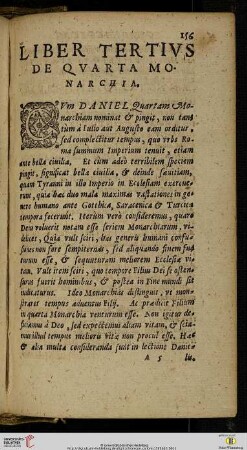 156
LIBER TERTIVS
DE QVARTA MO-
NARCHIA.
CVm DANIEL Quartam Mo-
narchiam nominat & pingit, non tan-
tùm à Iulio aut Augusto eam orditur,
sed complectitur tempus, quo vrbs Ro-
ma summum Imperium tenuit, etiam
ante bella ciuilia. Et cùm adeò terribilem speciem
pingit, significat bella ciuilia, & deinde sæuitiam,
quam Tyranni in illo Imperio in Ecclesiam exercue-
runt, quia hæc duo mala maximas vastationes in ge-
nere humano ante Gotthica, Saracenica & Turcica
tempora fecerunt. Iterum verò consideremus, quare
Deus voluerit notam esse seriem Monarchiarum, vi-
delicet, Quia vult sciri, has generis humani confu-
siones non fore sempiternas, sed aliquando finem fu-
turum esse, & sequuturam meliorem Ecclesiæ vi-
tam. Vult item sciri, quo tempore Filius Dei se osten-
surus fuerit hominibus, & postea in fine mundi sit
iudicaturus. Ideò Monarchias distinguit, vt mon-
straret tempus aduentus Filij. Ac prædicit Filium
in quarta Monarchia venturum esse. Non igitur de-
ficiamus à Deo, sed expectemus aliam vitam, & scia-
mus illud tempus melioris vitæ non procul esse. Hæc
& alia multa consideranda sunt in lectione Danie-
A 5 lis.